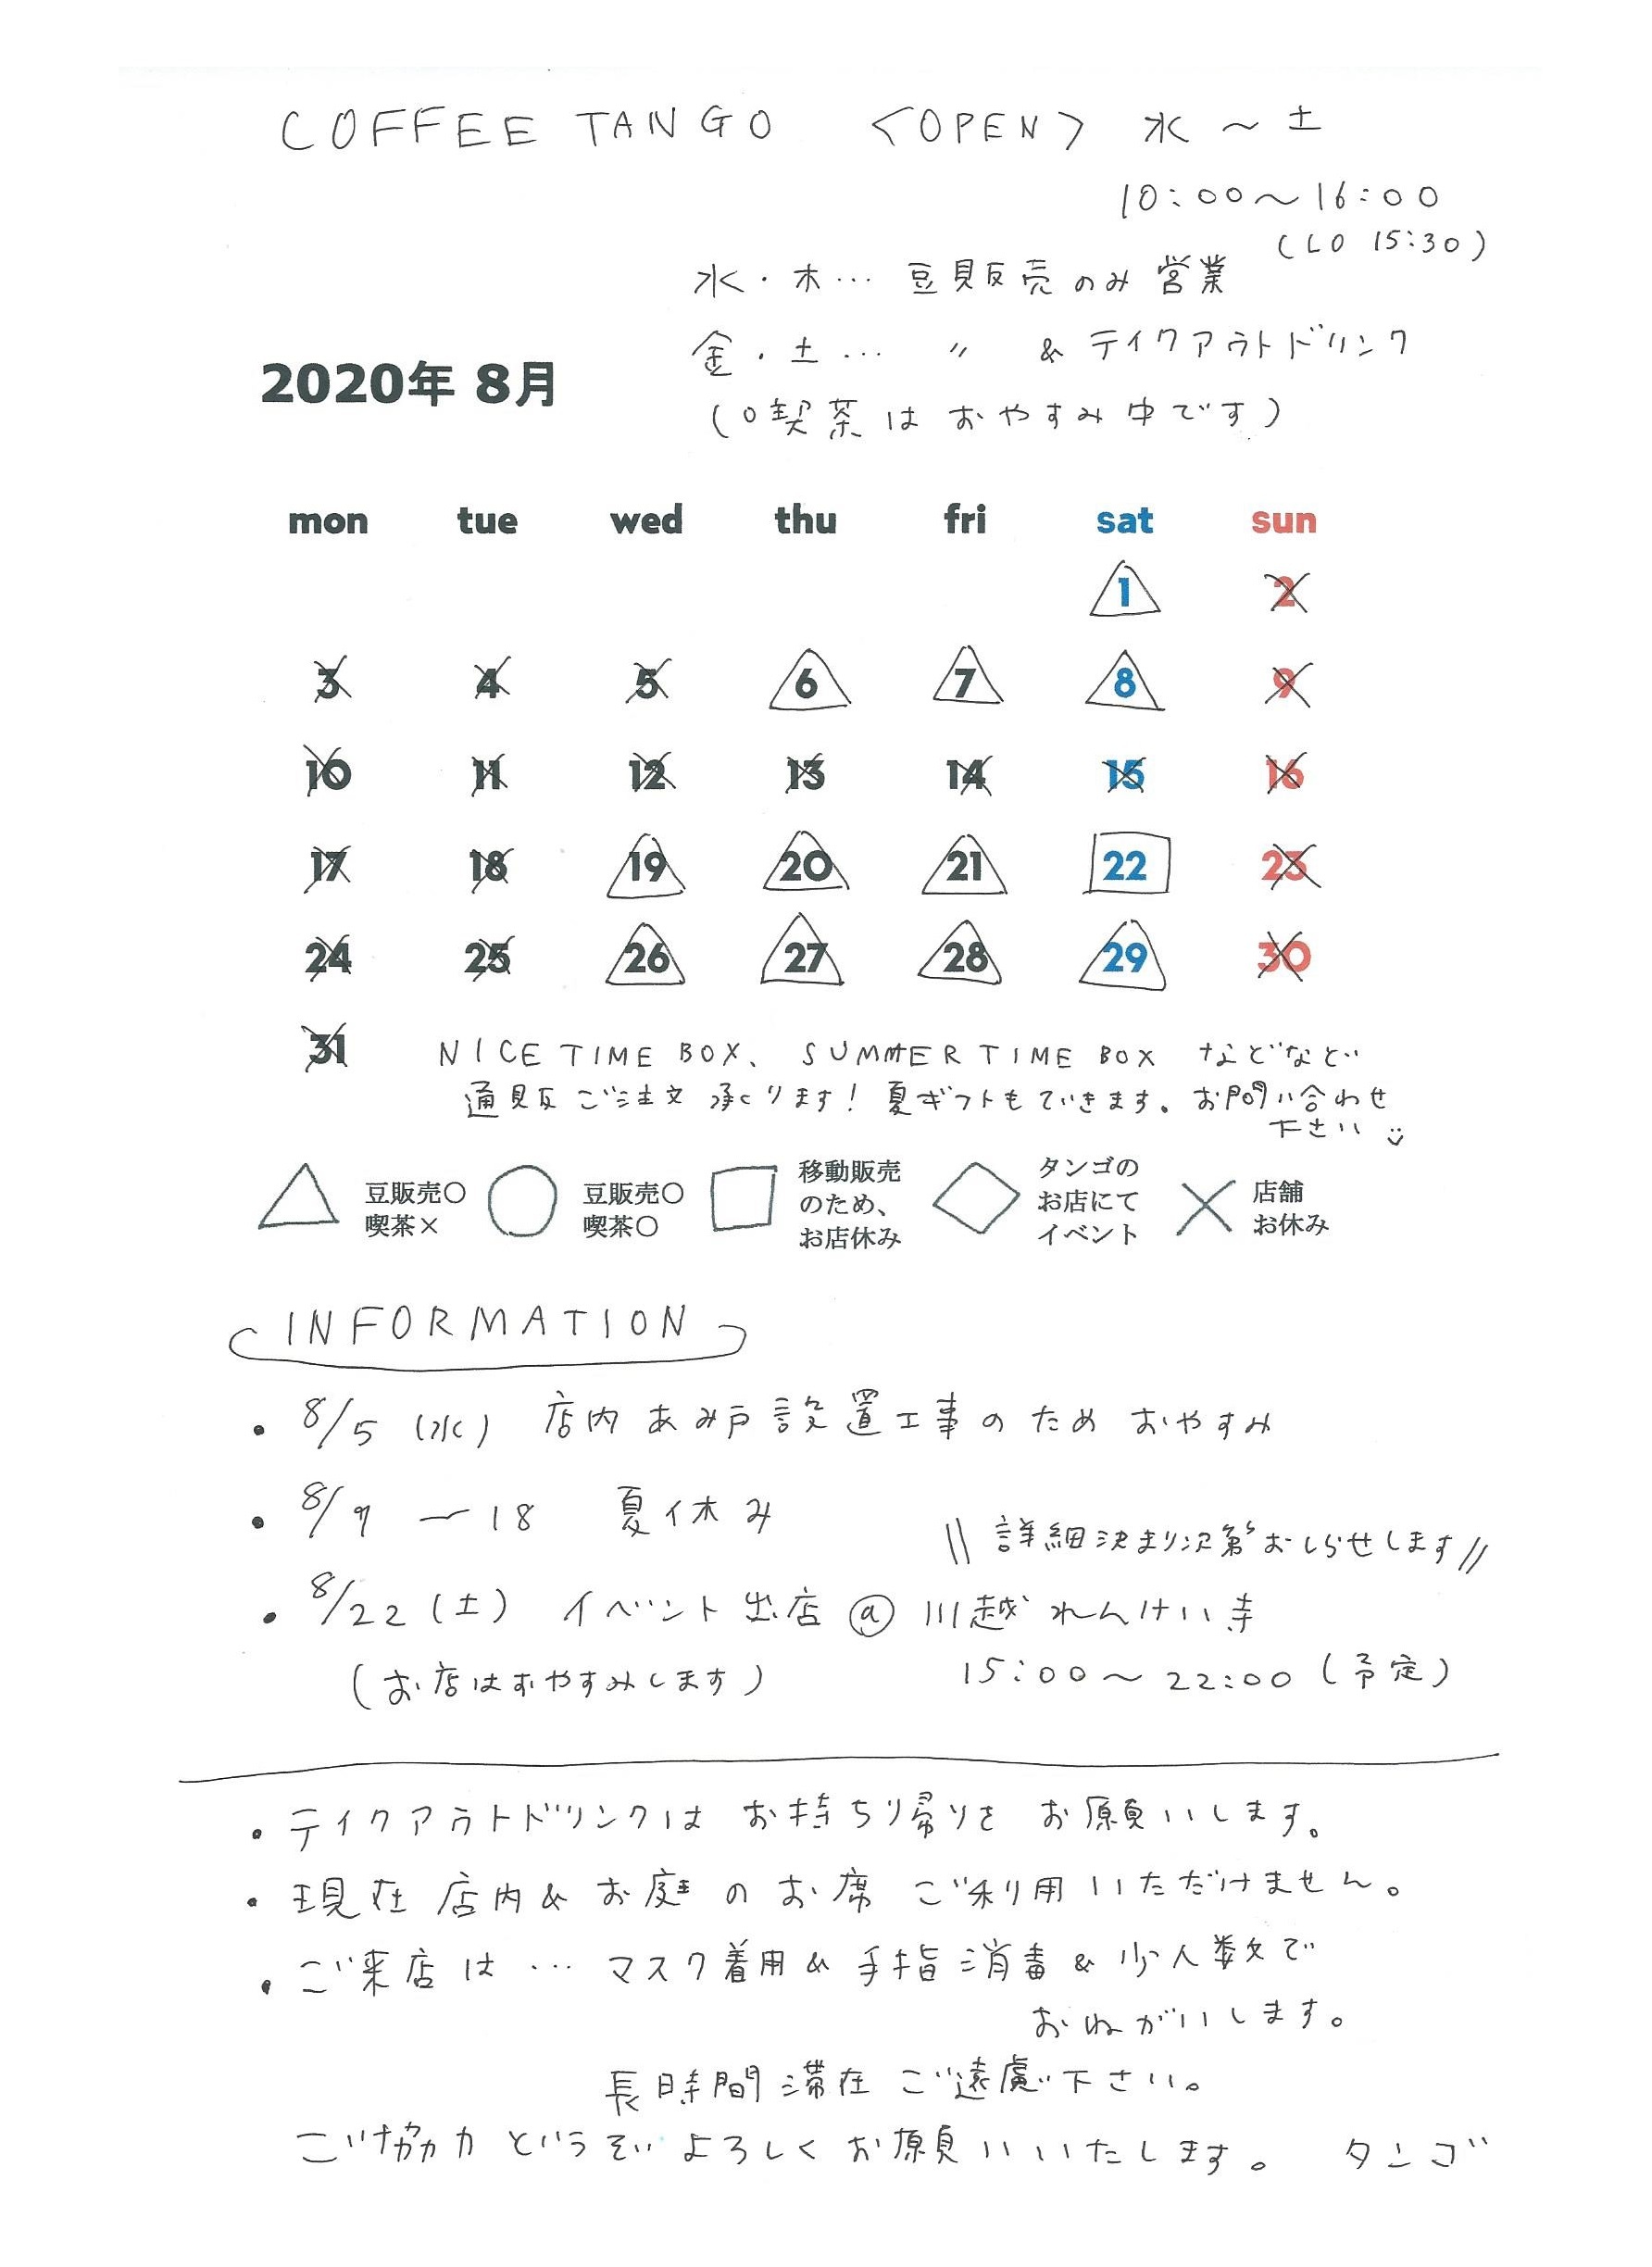 COFFEE TANGO 〈OPEN〉 水〜土
10:00〜16:00
(LO 15:30)
水・木… 豆販売のみ営業
金・土… 〃 & テイクアウトドリンク
(○喫茶はおやすみ中です)
2020年 8月
mon tue wed thu fri sat sun
1 2
3 4 5 6 7 8 9
10 11 12 13 14 15 16
17 18 19 20 21 22 23
24 25 26 27 28 29 30
31
NICE TIME BOX、SUMMER TIME BOX などなど
通販ご注文承ります! 夏ギフトもできます。お問い合わせ
下さい
豆販売○ 喫茶×
豆販売○ 喫茶○
移動販売のため、お店休み
タンゴのお店にてイベント
店舗お休み
INFORMATION
・8/5 (水) 店内あみ戸設置工事のためおやすみ
・8/9 ー18 夏休み
\\ 詳細決まり次第おしらせします //
・8/22(土) イベント出店 @ 川越れんけい寺
(お店はおやすみします) 15:00〜22:00(予定)
・テイクアウトドリンクは お持ち帰りを お願いします。
・現在 店内 & お庭のお席 ご利用いただけません。
・ご来店は … マスク着用 & 手指消毒 & 少人数で
おねがいします。
長時間滞在 ご遠慮下さい。
ご協力どうぞよろしくお願いいたします。 タンゴ